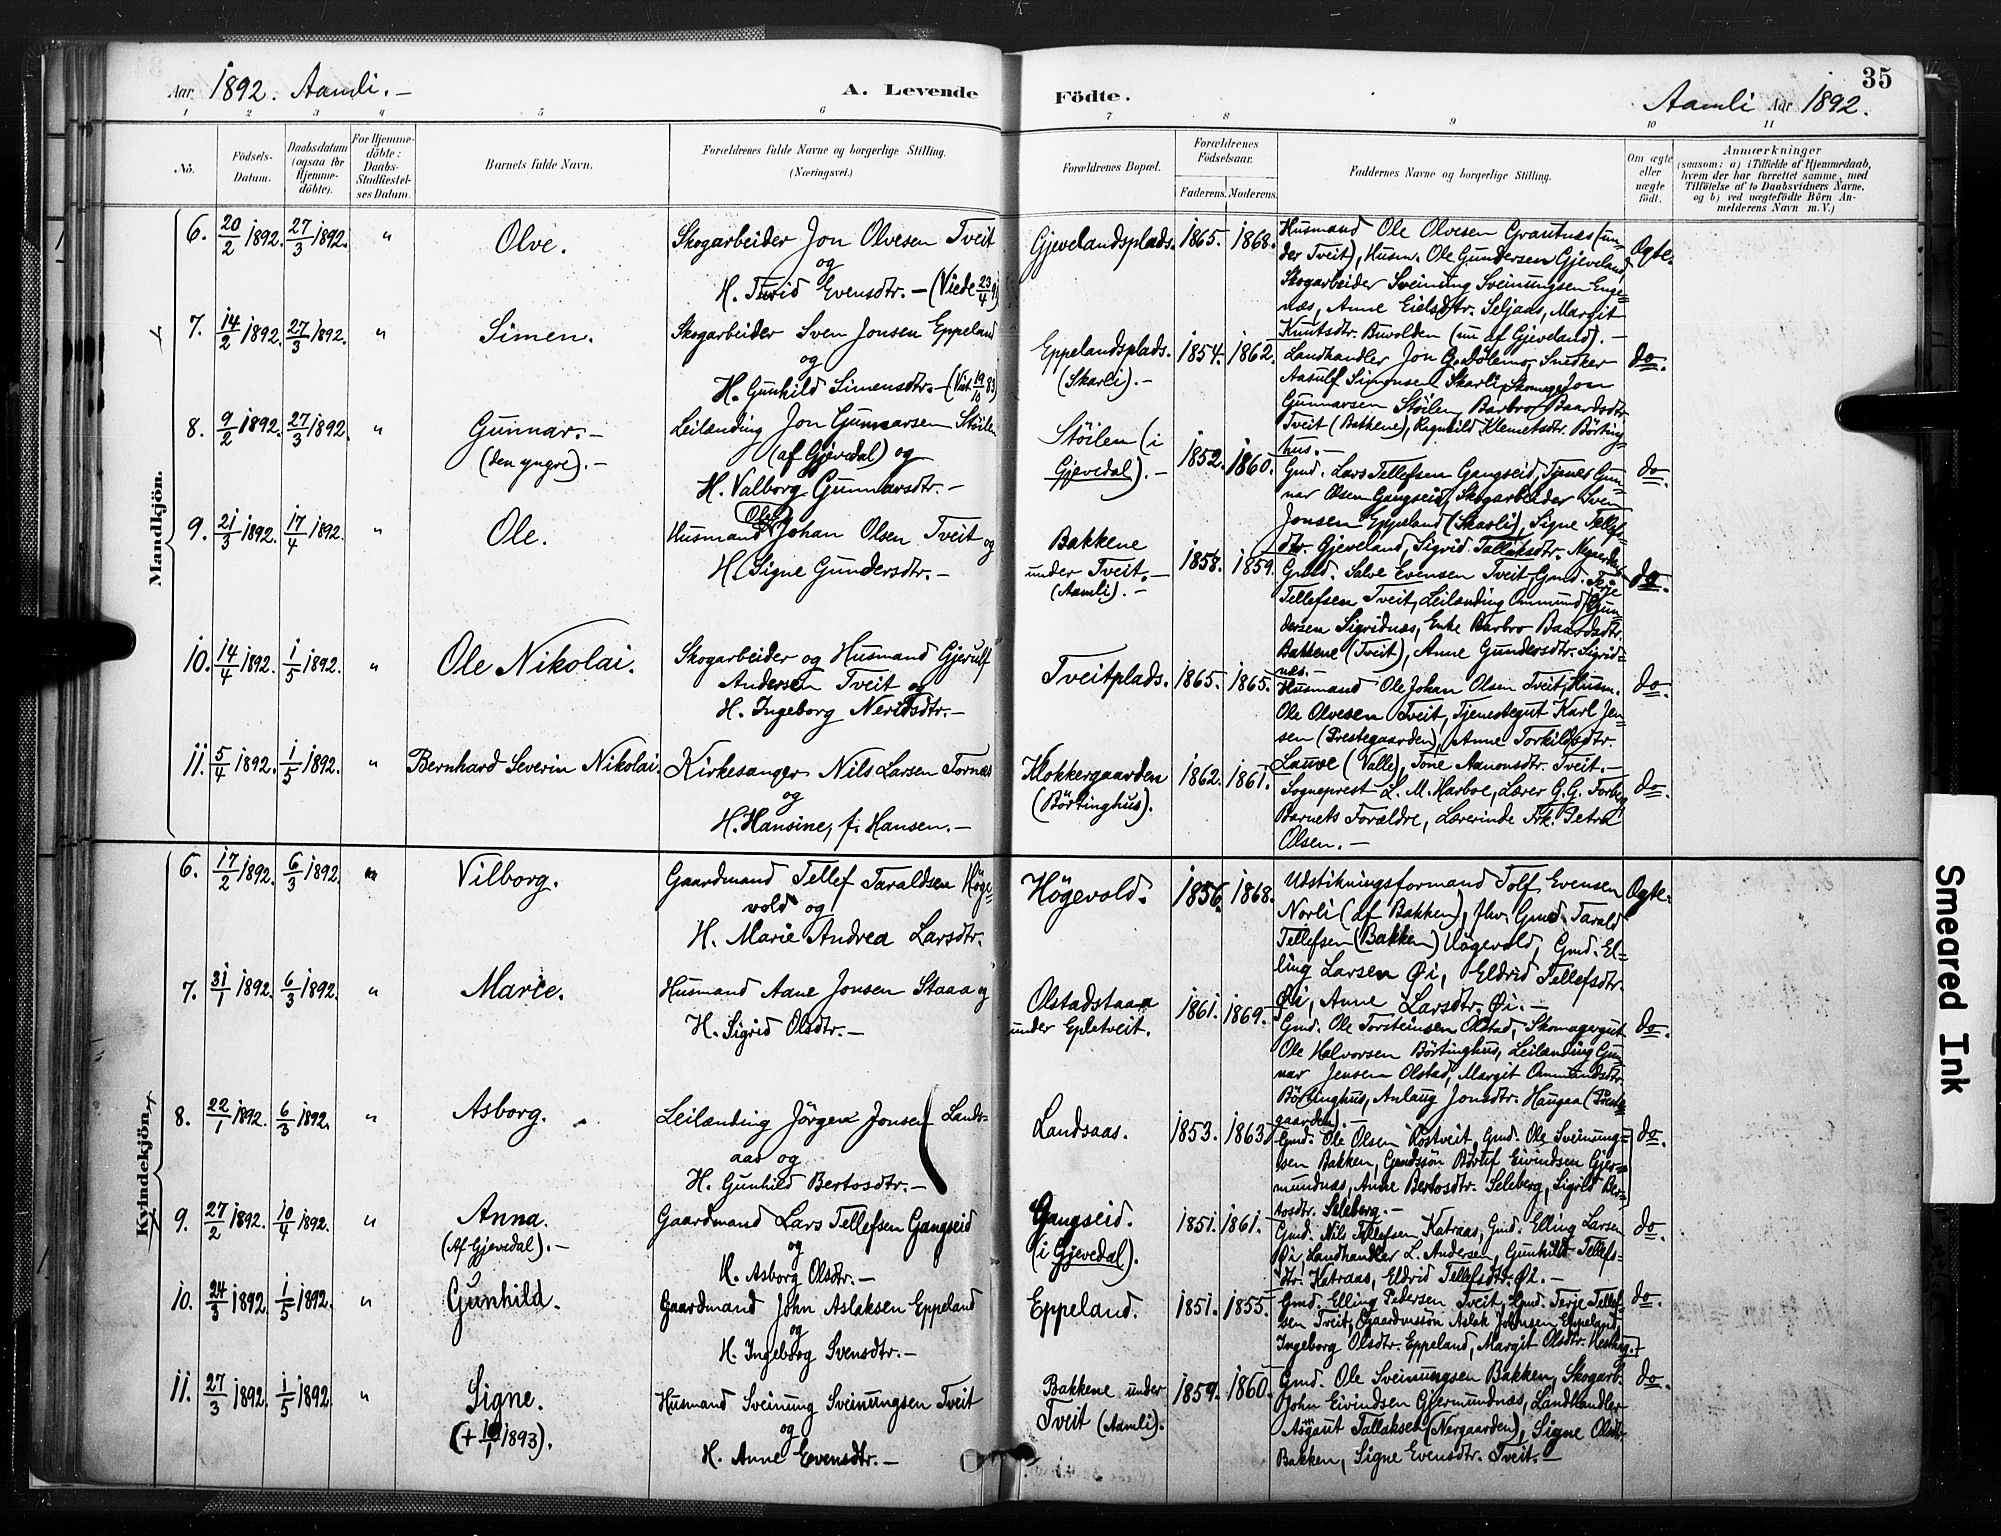 Aar 1892. Aamli. –
A. Levende
Födte.
Aamli Aar 1892.
35
1 2 3 4 5 6 7 8 9 10 11
No.
Födsels-Datum.
Daabsdatum (ogsaa for Hjemme-döbte).
For Hjemme-döbte: Daabs-Stadfæstel-ses Datum.
Barnets fulde Navn.
Forældrenes fulde Navne og borgerlige Stilling. (Næringsvei.)
Forældrenes Bopæl.
Forældrenes Födselsaar.
Faderens. Moderens.
Faddernes Navne og borgerlige Stilling.
Om ægte eller uægte födt.
Anmærkninger
(saasom: a) i Tilfælde af Hjemmedaab,
hvem der har forrettet samme, med
Tilföielse af to Daabsvidners Navne,
og b) ved uægtefödte Börn An-
melderens Navn m. V.)
Mandkjön.
6. 20/2 1892. 27/3 1892. " Olve. Skogarbeider Jon Olvesen Tveit
og
H. Turid Evensdtr. – (Viede 23/4 91)
Gjevelandsplads. 1865. 1868.
Husmand Ole Olvesen Grautnæs (un-
der Tveit), Husm. Ole Gundersen Gjeveland,
Skogarbeider Sveinung Sveinungsen Enge-
næs, Anne Eielsdtr. Seljaas, Margit
Knutsdtr. Buvolden (nu af Gjeveland). –
Ægte.
7. 14/2 1892. 27/3 1892. " Simen. Skogarbeider Sven Jonsen Eppeland
og
H. Gunhild Simensdtr. – (Viet 19/10 83)
Eppelandsplads.
(Skarli). –
1854. 1862.
Landhandler Jon G. Dölemo, Snedker
Aasulf Simonsen Skarli, Skomager Jon
Gunnarsen Stöilen, Barbro Baardsdtr.
Tveit (Bakkene), Ragnhild Klemetsdtr. Börting-
hus. –
do.
8. 9/2 1892. 27/3 1892. " Gunnar. –
(den yngre). –
Leilænding Jon Gunnarsen Stöilen
(af Gjevedal) og
H. Valborg Gunnarsdtr. –
Stöilen (i
Gjevedal). –
1852. 1860.
Gmd. Lars Tellefsen Gangseid, Tjener Gun-
nar Olsen Gangseid, Skogarbeider Sven
Jonsen Eppeland (Skarli), Signe Tellefs-
dtr. Gjeveland, Sigrid Tallaksdtr. Negaarden
do.
9. 21/3 1892. 17/4 1892. " Ole. Husmand Ole Johan Olsen Tveit og
H. Signe Gundersdtr. –
Bakkene
under Tveit. –
(Aamli). –
1858. 1859.
Gmd. Salve Evensen Tveit, Gmd. Terje
Tellefsen Tveit, Leilænding Ommund Gun-
dersen Sigridnæs, Enke Barbro Baardsdtr.
Bakkene (Tveit), Anne Gundersdtr. Sigrid-
næs. –
do.
10. 14/4 1892. 1/5 1892. " Ole Nikolai. Skogarbeider og Husmand Gjerulf
Andersen Tveit og
H. Ingeborg Neridsdtr. –
Tveitplads. 1865. 1865.
Husmand Ole Johan Olsen Tveit, Husm.
Ole Olvesen Tveit, Tjenestegut Karl Jen-
sen (Prestegaarden), Anne Torkildsdtr.
Lauve (Valle), Tone Aanonsdtr. Tveit. –
do.
11. 5/4 1892. 1/5 1892. " Bernhard Severin Nikolai. Kirkesanger Nils Larsen Tornæs
og
H. Hansine, f. Hansen. –
Klokkergaarden
(Börtinghus).
1862. 1861.
Sogneprest L. M. Harboe, Lærer G. G. Forberg
Barnets Forældre, Lærerinde Frk. Petra
Olsen. –
do.
Kvindekjön.
6. 17/2 1892. 6/3 1892. " Vilborg. Gaardmand Tellef Taraldsen Höge-
vold og
H. Marie Andrea Larsdtr.
Högevold. 1856. 1868.
Udstikningsformand Tolf Evensen
Norli (af Bakken), fhv. Gmd. Tarald
Tellefsen (Bakken) Högevold, Gmd. El-
ling Larsen Øi, Eldrid Tellefsdtr.
Øi, Anne Larsdtr. Øi. –
Ægte.
7. 31/1 1892. 6/3 1892. " Marie. Husmand Aane Jonsen Staaa og
H. Sigrid Olsdtr. –
Olstadstaaa
under Epletveit.
1861. 1869.
Gmd. Ole Torsteinsen Olstad, Skomagergut
Ole Halvorsen Börtinghus, Leilænding Gun-
nar Jensen Olstad, Margit Ommundsdtr.
Börtinghus, Anlaug Jonsdtr. Haugaa (Preste-
gaarden). –
do.
8. 22/1 1892. 6/3 1892. " Asborg. Leilænding Jörgen Jonsen Lands-
aas og
H. Gunhild Bertosdtr. –
Landsaas. 1853. 1863.
Gmd. Ole Olsen Rostveit, Gmd. Ole Sveinung-
sen Bakken, Gaardssön Börtil Eivindsen Gjer-
mundnæs, Anne Bertosdtr. Seleberg, Sigrid Ber-
tosdtr. Seleberg. –
do.
9. 27/2 1892. 10/4 1892. " Anna.
(Af Gjevedal). –
Gaardmand Lars Tellefsen Gangseid
og
H. Asborg Olsdtr. –
Gangseid.
(i Gjevedal).
1851. 1861.
Gmd. Nils Tellefsen Katraas, Gmd. Elling Larsen
Øi, Landhandler L. Andersen, Gunhild Tellefs-
dtr. Katraas, Eldrid Tellefsdtr. Øi. –
do.
10. 24/3 1892. 1/5 1892. " Gunhild. Gaardmand John Aslaksen Eppeland
og
H. Ingeborg Svensdtr. –
Eppeland. 1851. 1855.
Gmd. Elling Pedersen Tveit, Gmd. Terje Tellef-
sen Tveit, Gaardmssön Aslak Johnsen Eppeland,
Ingeborg Olsdtr. Eppeland, Margit Olsdtr.
do.
11. 27/3 1892. 1/5 1892. " Signe.
(+ 1893).
Husmand Sveinung Sveinungsen Tveit
og
H. Anne Evensdtr. –
Bakkene under
Tveit (Aamli).
1859. 1860.
Gmd. Ole Sveinungsen Bakken, Skogarb.
John Eivindsen Gjermundnæs, Landhandler
Asgaut Tallaksen (Nergaarden), Signe Olsdtr.
Bakken, Signe Evensdtr. Tveit. –
do.
Smeared Ink